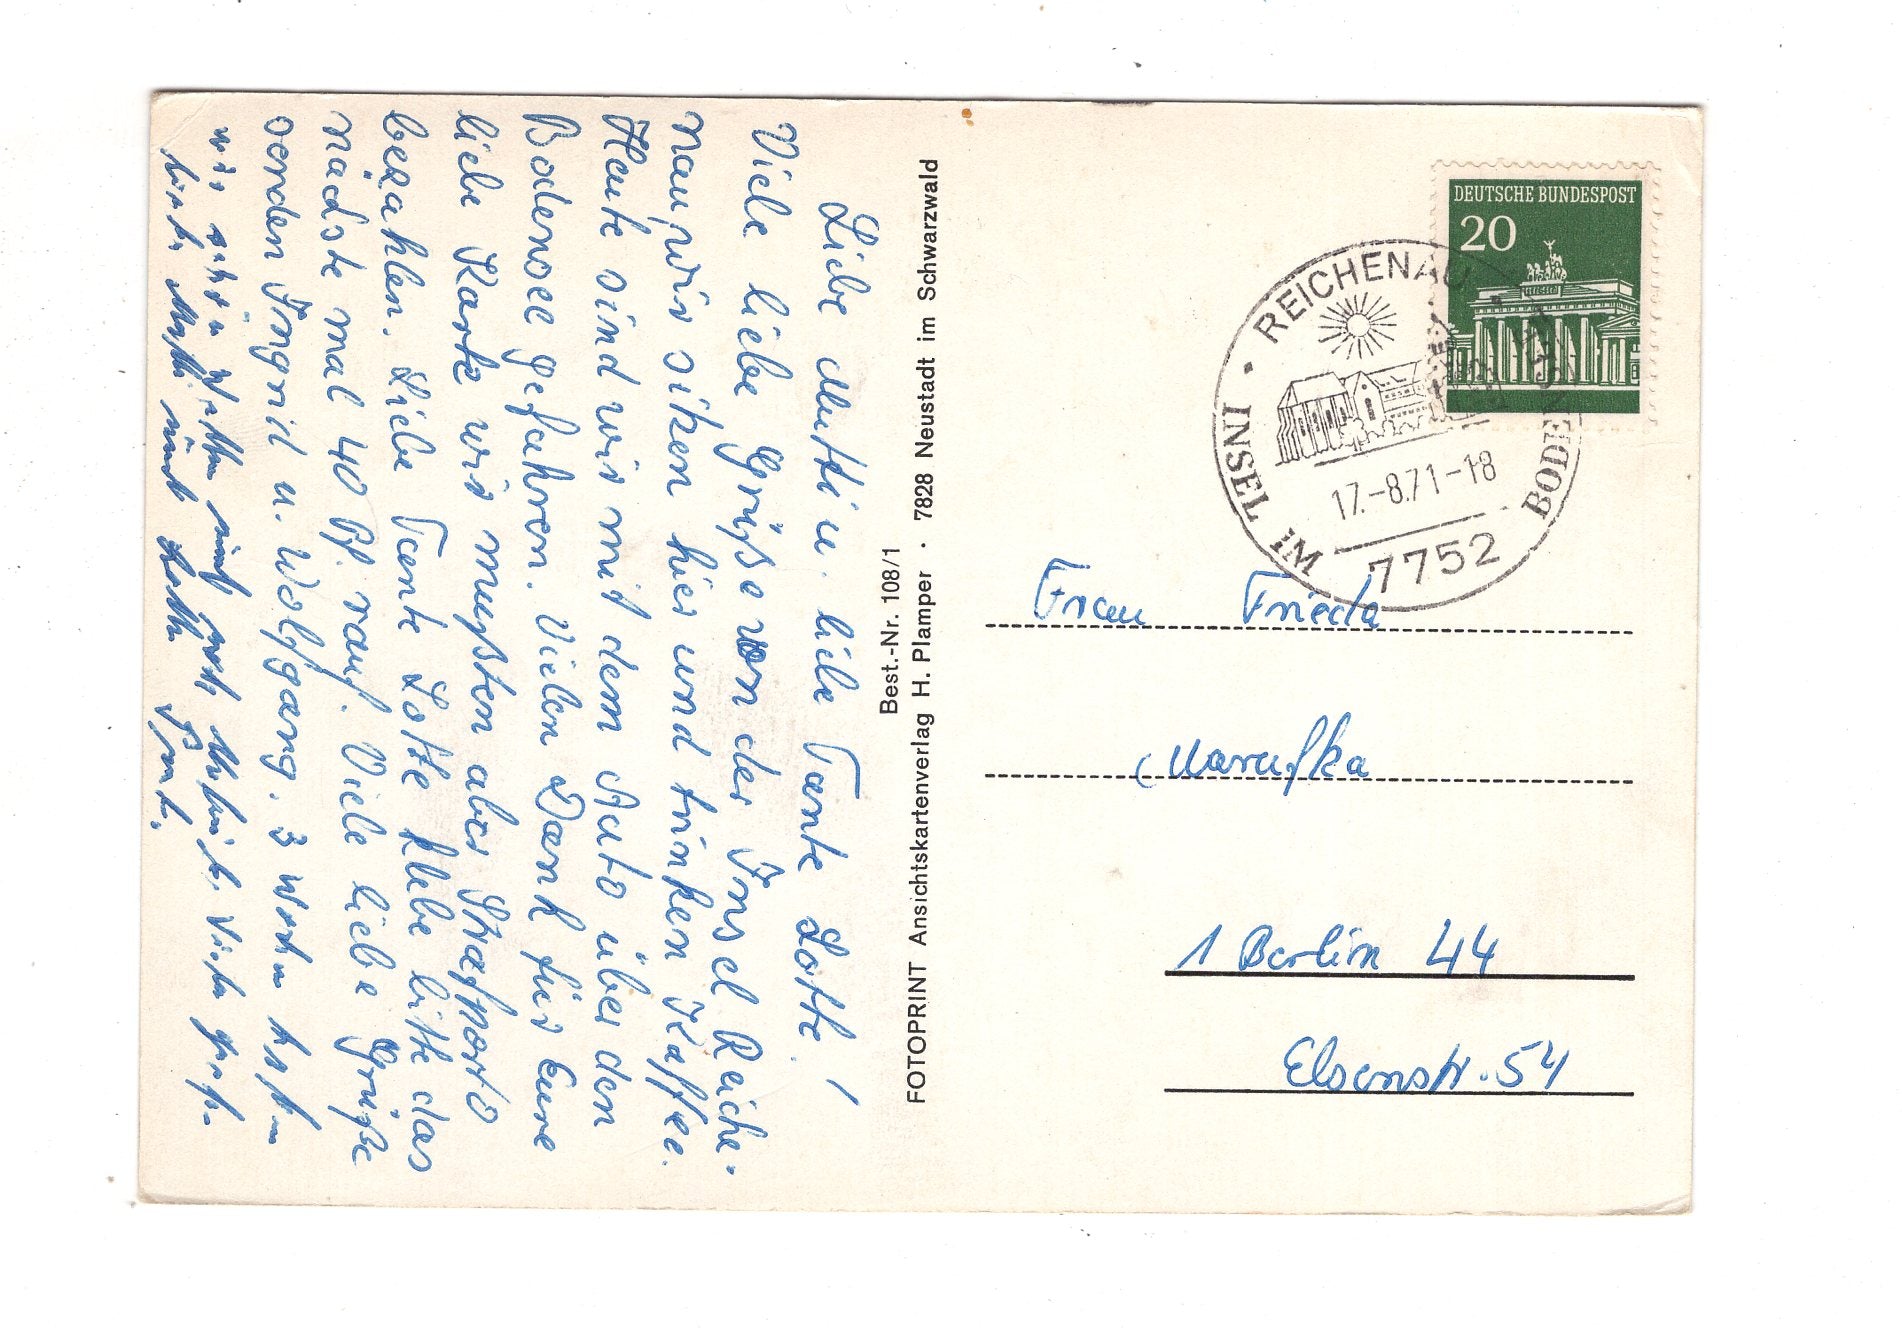 Liebe Mutti u. liebe Tante Lotte!
Viele liebe Grüße von der Insel Reiche-
nau. Wir sitzen hier und trinken Kaffee.
Heute sind wir mit dem Auto über den
Bodensee gefahren. Vielen Dank für Eure
liebe Karte wir mußten aber Strafporto
bezahlen. Liebe Tante Lotte klebe bitte das
nächste mal 40 Pf. rauf. Viele liebe Grüße
senden Ingrid u. Wolfgang. 3 Wochen hatten
wir Wetter und Viele
liebe Mutti und
Best.-Nr. 108/1
FOTOPRINT Ansichtskartenverlag H. Plamper · 7828 Neustadt im Schwarzwald
DEUTSCHE BUNDESPOST
20
· REICHENAU ·
INSEL IM BODENSEE
17.-8.71-18
7752
Frau Frieda
Marufka
1 Berlin 44
Elsenstr. 54